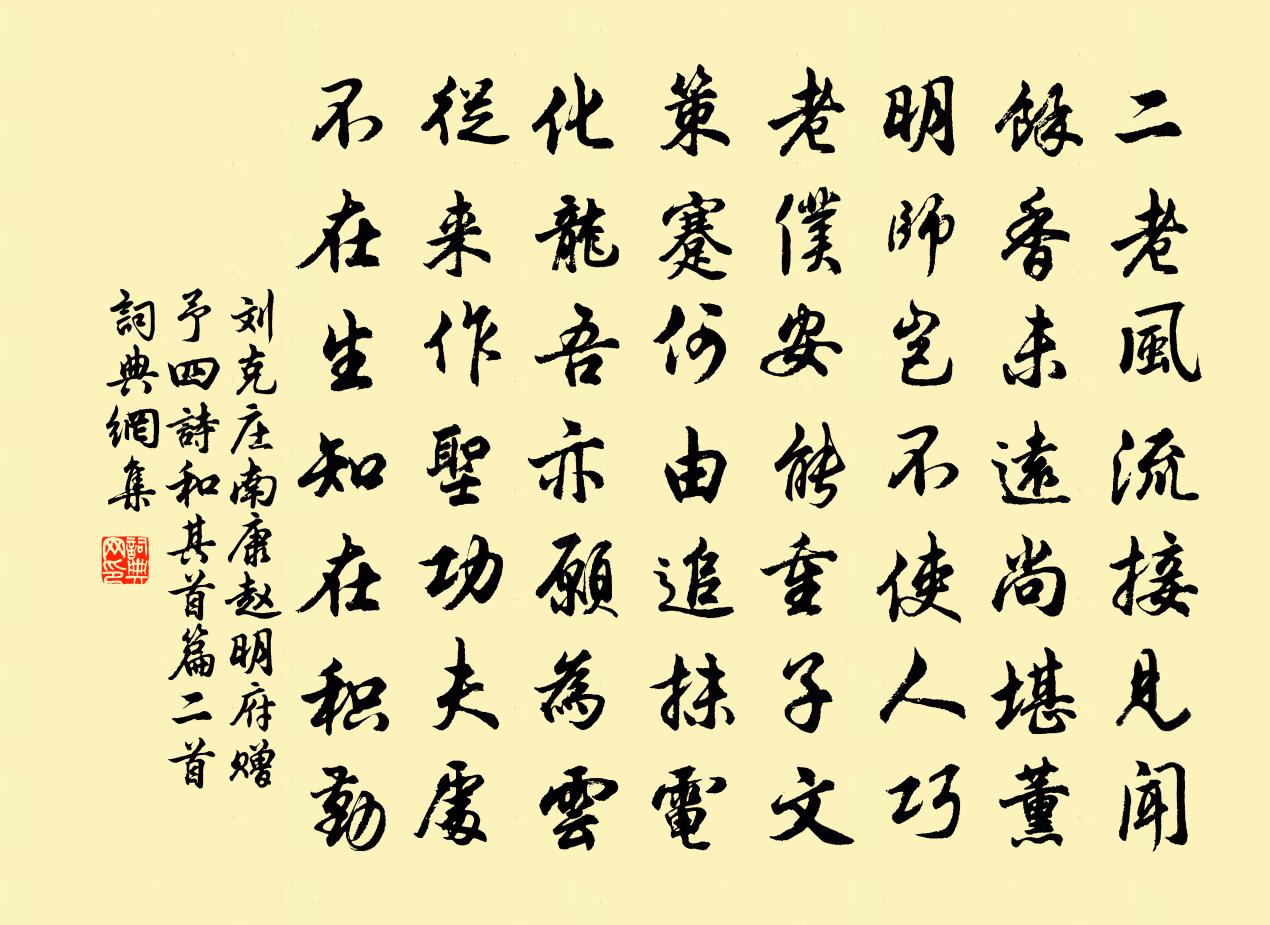 二老風流接見聞
餘香未遠尚堪薰
明師豈不使人巧
老僕安能重子文
策蹇何由追抹電
化龍吾亦願為雲
從来作聖功夫處
不在生知在积勤
刘克庄南康赵明府赠
予四詩和其首篇二首
詞典網集
詞典网印